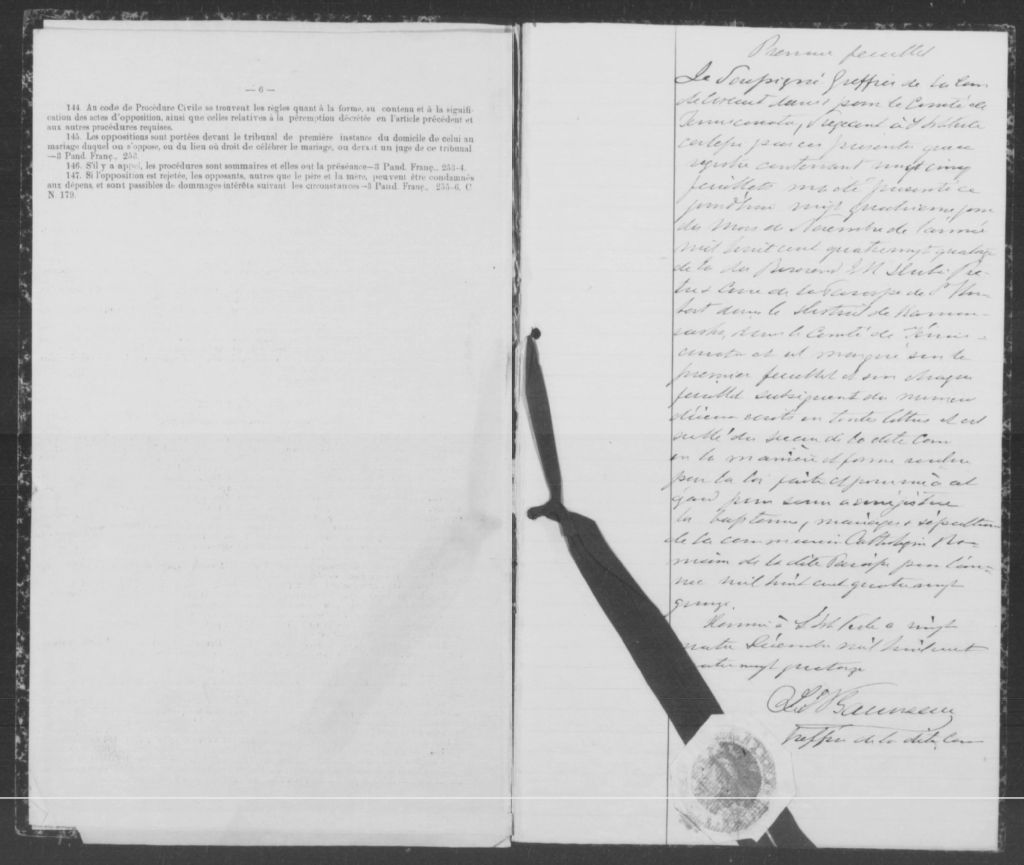 — 6 —
144. Au code de Procédure Civile se trouvent les règles quant à la forme, au contenu et à la signifi-
cation des actes d'opposition, ainsi que celles relatives à la péremption décrétée en l'article précédent et
aux autres procédures requises.
145. Les oppositions sont portées devant le tribunal de première instance du domicile de celui au
mariage duquel on s'oppose, ou du lieu où droit de célébrer le mariage, ou devant un juge de ce tribunal
—3 Pand. Franç., 253.
146. S'il y a appel, les procédures sont sommaires et elles ont la préséance—3 Pand. Franç., 253-4.
147. Si l'opposition est rejetée, les opposants, autres que le père et la mère, peuvent être condamnés
aux dépens, et sont passibles de dommages intérêts suivant les circonstances—3 Pand. Franç., 255-6, C.
N 179.
Premier feuillet
Le Soussigné Greffier de la Cour
de Circuit dans pour le Comté de
Temiscouata, à
certifie par ces presentes que ce
registre contenant vingt cinq
feuillets m'a été présenté ce
jourd'hui vingt quatrieme jour
du mois de Novembre de l'année
mil huit cent quatre vingt quatorze
de la du Reverend
Curé de la Paroisse de St Hu-
bert dans le district de Kamou-
raska, dans le Comté de Témis-
couata et est marqué sur le
premier feuillet et sur chaque
feuillet subséquent du numero
en toutes lettres et est
scellé du sceau de la dite Cour
en la manière et forme voulue
par la loi faite et pourvue à cet
égard pour servir a enregistrer
les baptemes, mariages & sépultures
de la communion Catholique Ro-
maine de la dite Paroisse pour l'an-
née mil huit cent quatre vingt
quinze.
Donné à L'Isle Verte ce vingt
quatre mil huit cent
quatre vingt quatorze
Greffier de la dite Cour